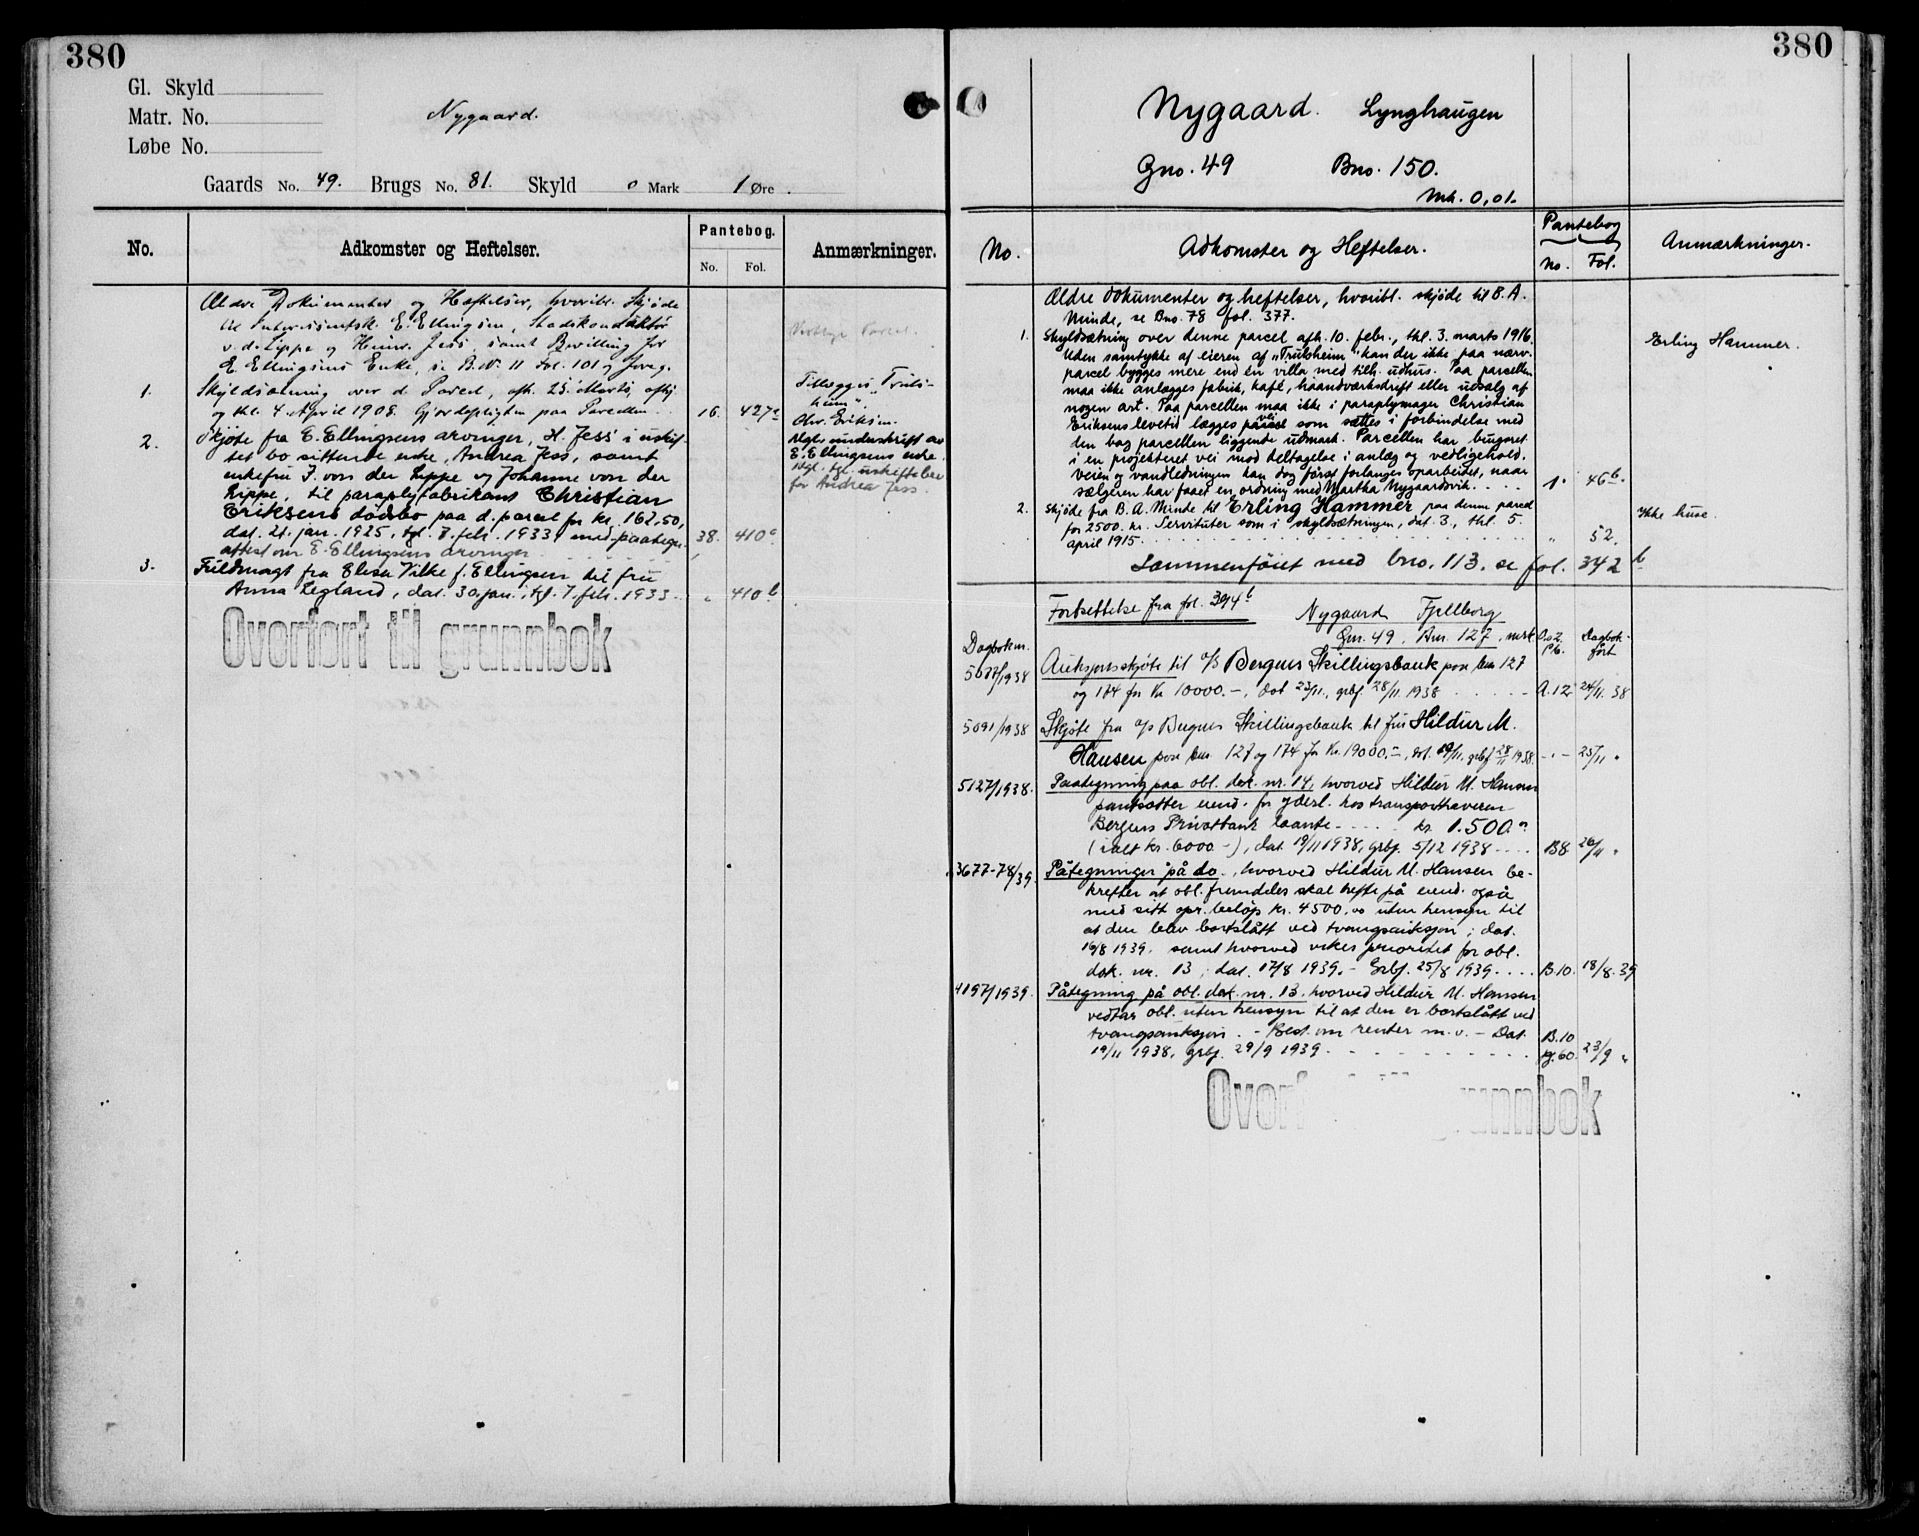 380
Gl. Skyld
Matr. No.
Løbe No.
Nygaard.
Gaards No. 49. Brugs No. 81. Skyld 0 Mark 1 Øre.
No.
Adkomster og Heftelser.
Pantebog.
No. Fol.
Anmærkninger.
Ældre Dokumenter og Heftelser, hvoribl. Skjøde
til E. Ellingsen, Stadskonduktør
v. d. Lippe og Henr. Jess samt Bevilling for
E. Ellingsens Enke, se B.N. 11 Fol. 101 og
1. Skyldsætning over d. Parcel, afh. 25. Marts, aflyst
og thl. 4. April 1908. Gjerdepligten paa Parcellen. 16. 427a
Tillægges "Truls-
heim".
Chr. Eriksen.
2. Skjøte fra E. Ellingsens arvinger, H. Jess' i uskif-
tet bo sittende enke, Andrea Jess, samt
enkefru J. von der Lippe og Johanne von der
Lippe, til paraplyfabrikant Christian
Eriksens dødsbo paa d. parcel for kr. 162.50,
dat. 21. jan. 1925, tgl. 7. feb. 1933, med paategn.
attest om E. Ellingsens arvinger 38. 410a
Mgl. underskrift av
E. Ellingsens enke.
Mgl. for uskiftebev
for Andrea Jess.
3. Fuldmagt fra Elisa Vilke f. Ellingsen til fru
Anna Legland, dat. 30. jan., tgl. 7. feb. 1933. " 410b
Overført til grunnbok
380
Nygaard. Lynghaugen
Gno. 49 Bno. 150.
Mk. 0,01.
No.
Adkomster og Heftelser.
Pantebog
No. Fol.
Anmærkninger.
Ældre dokumenter og heftelser, hvoribl. skjøde til B. A.
Minde, se Bno. 78 fol. 377.
1. Skyldsætning over denne parcel afh. 10. febr., thl. 3. marts 1916.
Uden samtykke af eieren af "Trulsheim" kan der ikke paa nærv.
parcel bygges mere end én villa med tilh. udhus. Paa parcellen
maa ikke anlægges fabrik, kafé, haandværksdrift eller udsalg af
nogen art. Paa parcellen maa ikke i paraplymager Christian
Eriksens levetid lægges vei som sættes i forbindelse med
den bag parcellen liggende udmark. Parcellen har brugsret
i en projekteret vei mod deltagelse i anlæg og vedligehold.
Veien og vandledningen kan dog først forlanges oparbeidet, naar
sælgeren har faaet en ordning med Martha Nygaardsvik. 1. 46b.
Erling Hammer.
2. Skjøde fra B. A. Minde til Erling Hammer paa denne parcel
for 2500. kr. Servituter som i skyldsætningen, dat. 3., thl. 5.
april 1915. " 52.
Ikke huse.
Sammenføiet med bno. 113. se fol. 342 b
Fortsettelse fra fol. 394b Nygaard Fjellborg
Gnr. 49, Bnr. 127, mrk 0.02
Dagboknr. Pb. Dagbok-
ført
5077/1938 Auksjonsskjøte til a/s Bergens Skillingsbank paa bnr 127
og 174 for kr 10000.-, dat 23/11., grbf. 28/11 1938 A.12 24/11. 38
5091/1938 Skjøte fra a/s Bergens Skillingsbank til fru Hildur M.
Hansen paa bnr 127 og 174 for kr. 19000.-, dat. 19/11, grbf 28/11 1938. - " - 25/11 "
5127/1938. Paategning paa obl. dok. nr. 14, hvorved Hildur M. Hansen
pantsætter eiend. for yderl. hos transporthaveren
Bergens Privatbank laante kr. 1.500.00
(ialt kr. 6000.-), dat. 19/11 1938, grbf. 5/12 1938 B8 26/11 "
3677-78/39. Påtegninger på do., hvorved Hildur M. Hansen be-
krefter at obl. fremdeles skal hefte på eiend. også
med sitt opr. beløp kr. 4500,00 uten hensyn til
at den blev bortslått ved tvangsauksjon; dat.
16/8 1939. samt hvorved vikes prioritet for obl.
dok. nr. 13, dat. 17/8 1939. - Grbf. 25/8 1939. B.10. 18/8. 39
4197/1939. Påtegning på obl. dok. nr. 13. hvorved Hildur M. Hansen
vedtar obl. uten hensyn til at den er bortslått ved
tvangsauksjon. - Best. om renter m.v. - Dat.
19/11 1938, grbf. 29/9 1939. B.10 pg. 60. 23/9 "
Overført til grunnbok